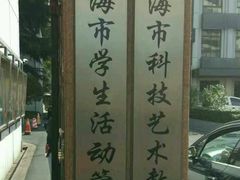 海市学生活动管
海市科技艺术教